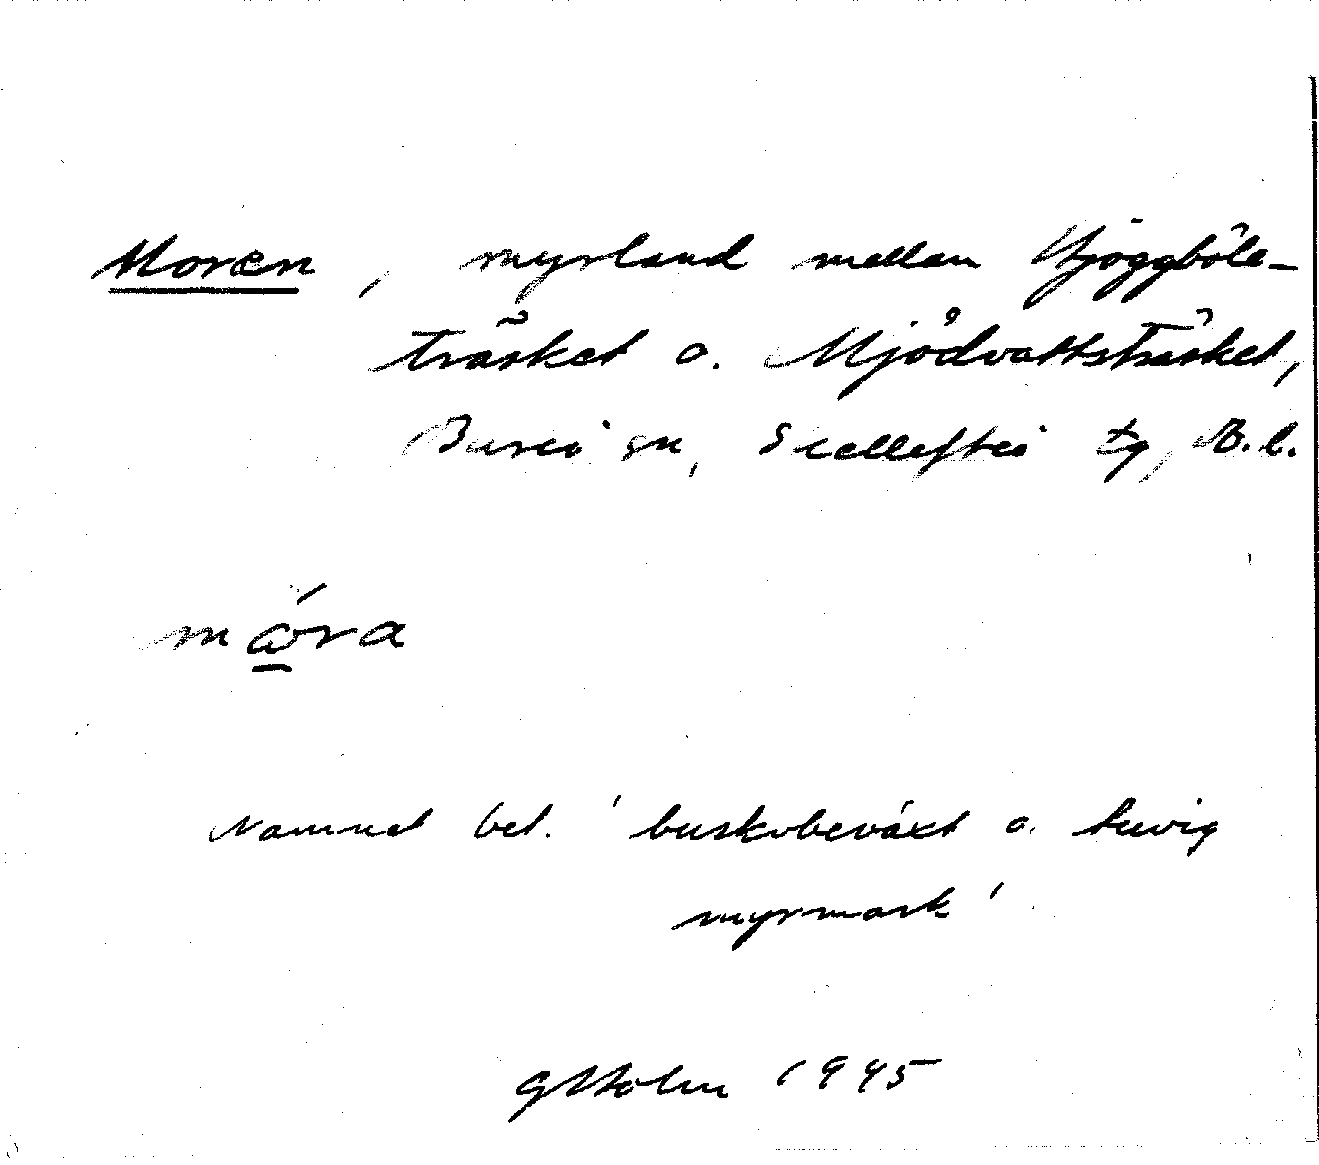 Moren, myrland mellan Hjoggböle-
träsket o. Mjödvattsträsket,
Bureå sn, Skellefteå tg, V.b.
mώ̲ra
Namnet bet. 'buskbeväxt o. tuvig
myrmark'
G Holm 1945